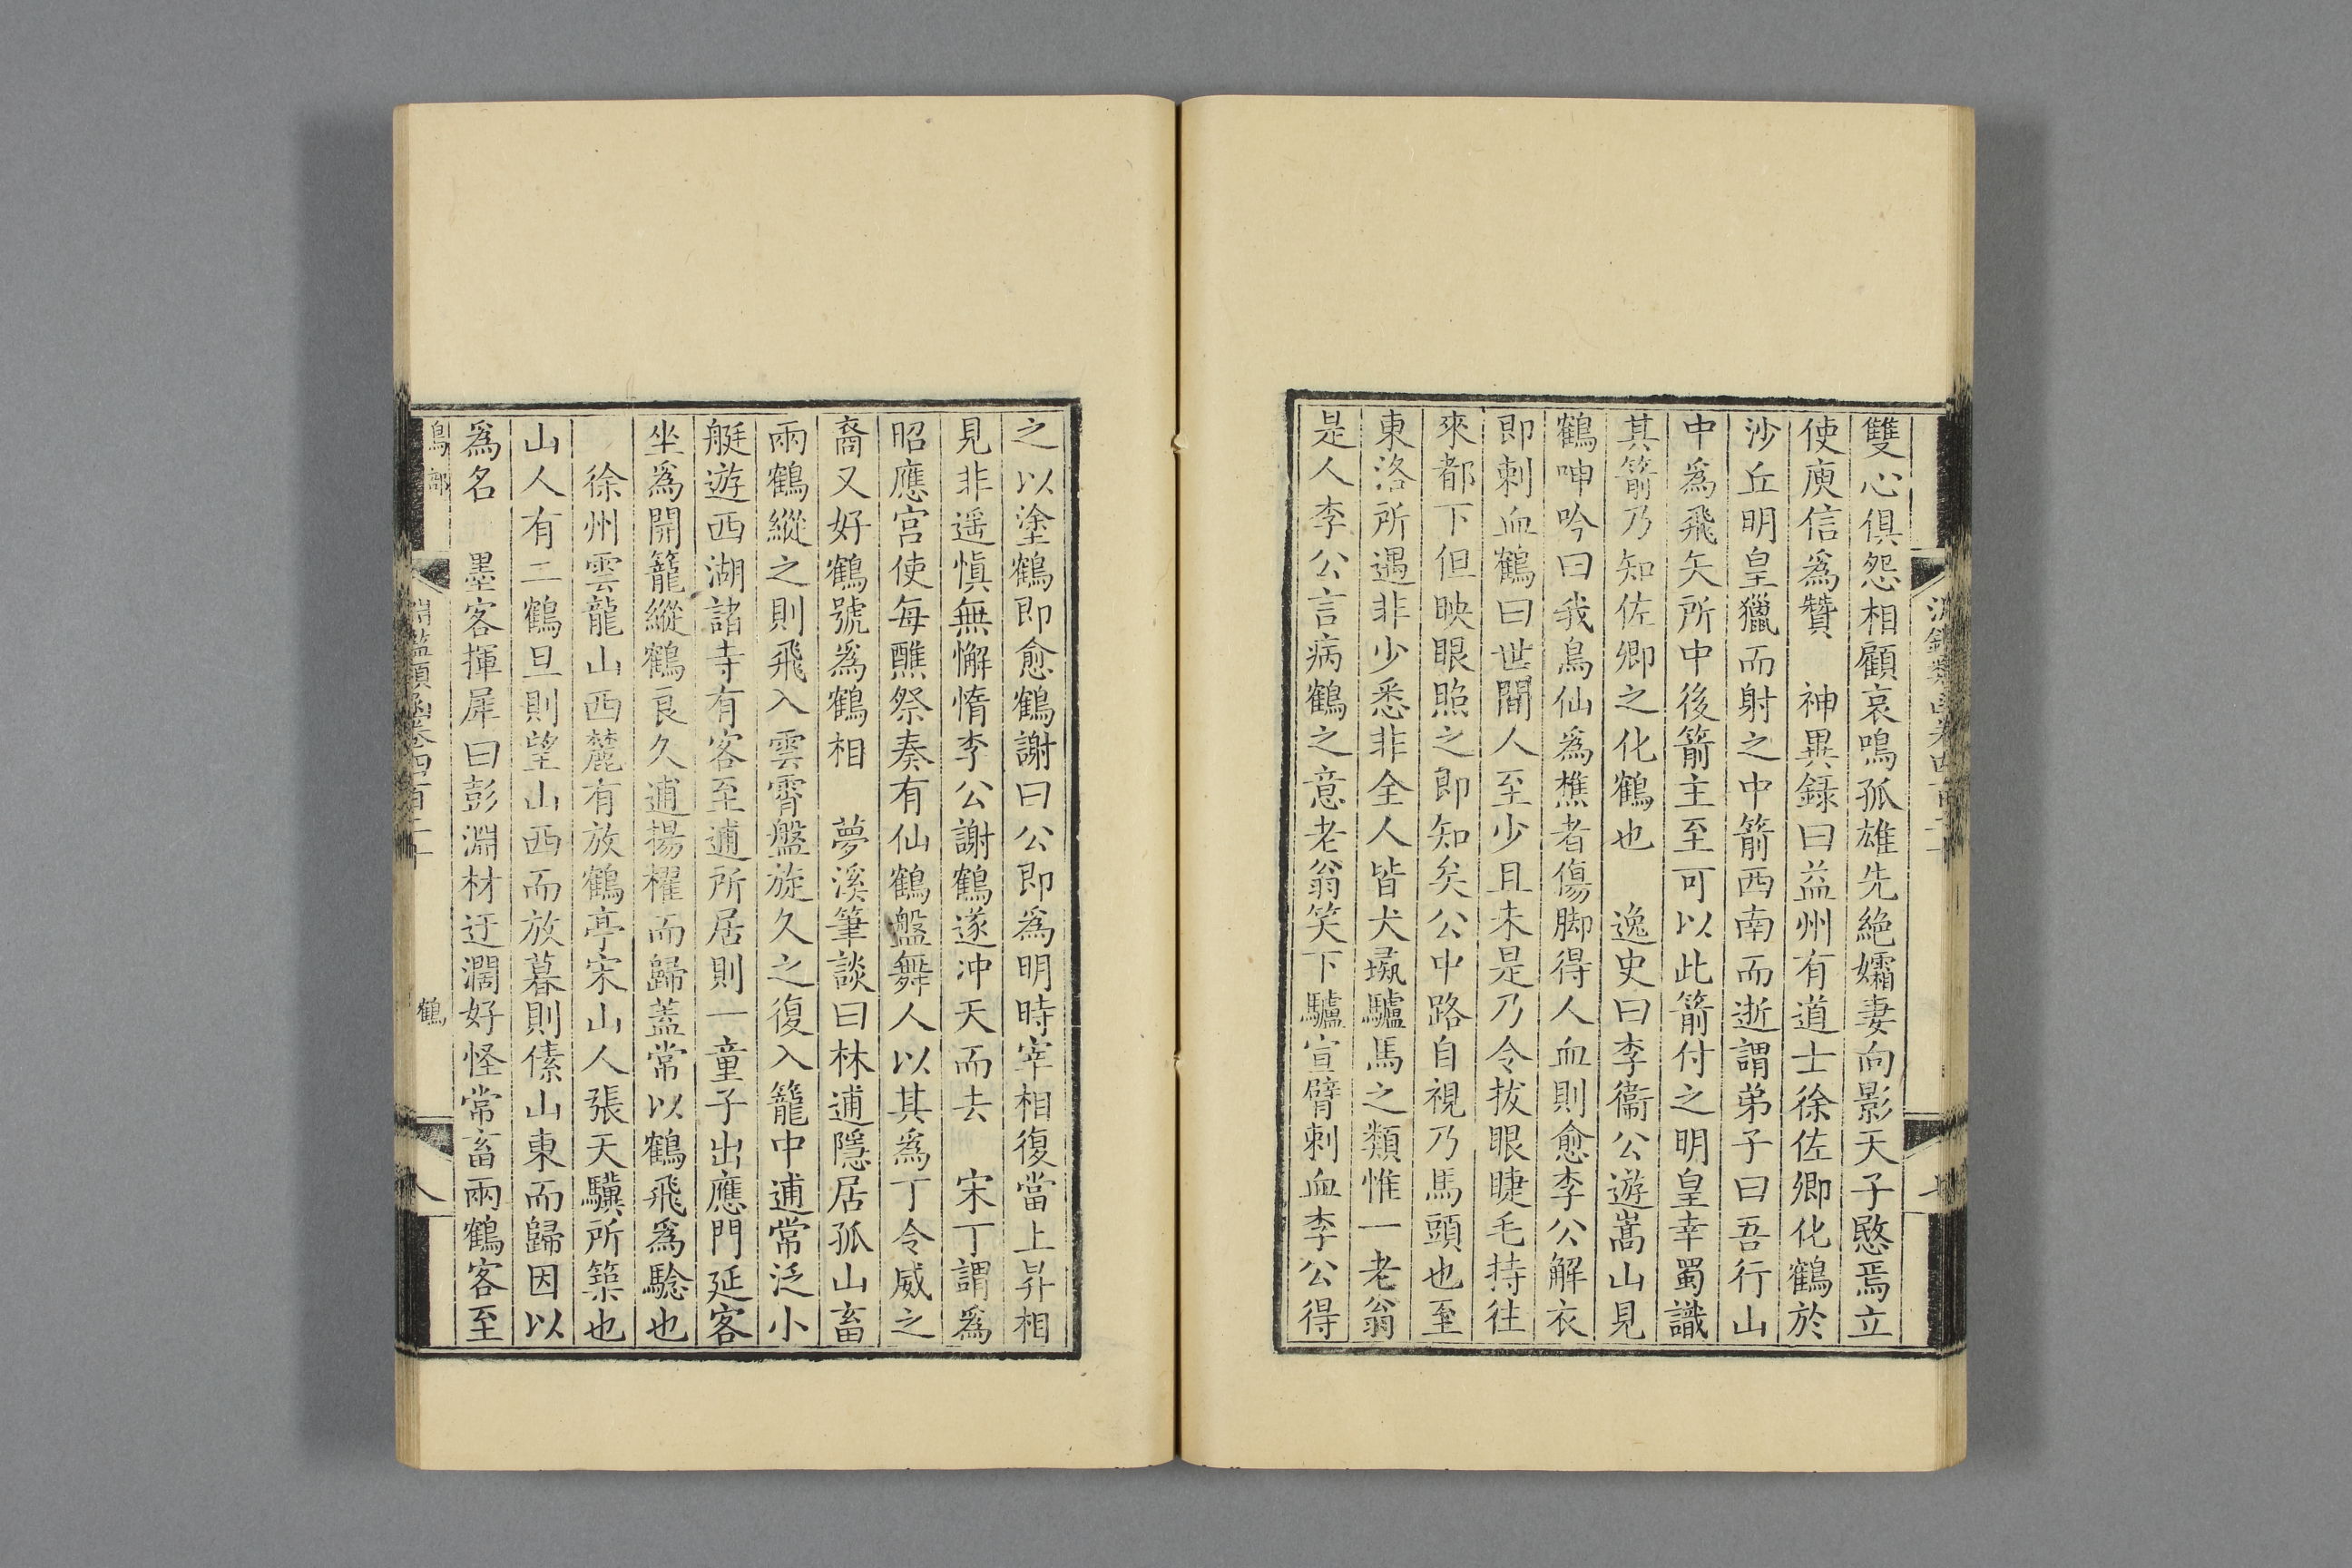 雙心俱怨相顧哀鳴孤雄先絶孀妻向影天子愍焉立
使庾信爲贊　神異錄曰益州有道士徐佐卿化鶴於
沙丘明皇獵而射之中箭西南而逝謂弟子曰吾行山
中爲飛矢所中後箭主至可以此箭付之明皇幸蜀識
其箭乃知佐卿之化鶴也　逸史曰李衞公遊嵩山見
鶴呻吟曰我鳥仙爲樵者傷脚得人血則愈李公解衣
即刺血鶴曰世間人至少且未是乃令拔眼睫毛持往
來都下但映眼照之即知矣公中路自視乃馬頭也至
東洛所遇非少悉非全人皆犬彘驢馬之類惟一老翁
是人李公言病鶴之意老翁笑下驢宣臂刺血李公得
之以塗鶴即愈鶴謝曰公即爲明時宰相復當上昇相
見非遥慎無懈惰李公謝鶴遂冲天而去　宋丁謂爲
昭應宫使每醮祭奏有仙鶴盤舞人以其爲丁令威之
裔又好鶴號爲鶴相　夢溪筆談曰林逋隱居孤山畜
兩鶴縱之則飛入雲霄盤旋久之復入籠中逋常泛小
艇遊西湖諸寺有客至逋所居則一童子出應門延客
坐爲開籠縱鶴良久逋揚櫂而歸蓋常以鶴飛爲騐也
徐州雲龍山西麓有放鶴亭宋山人張天驥所築也
山人有二鶴旦則望山西而放暮則傃山東而歸因以
爲名　墨客揮犀曰彭淵材迂濶好怪常畜兩鶴客至
鳥部　淵鑑類函卷四百二十　鶴　八